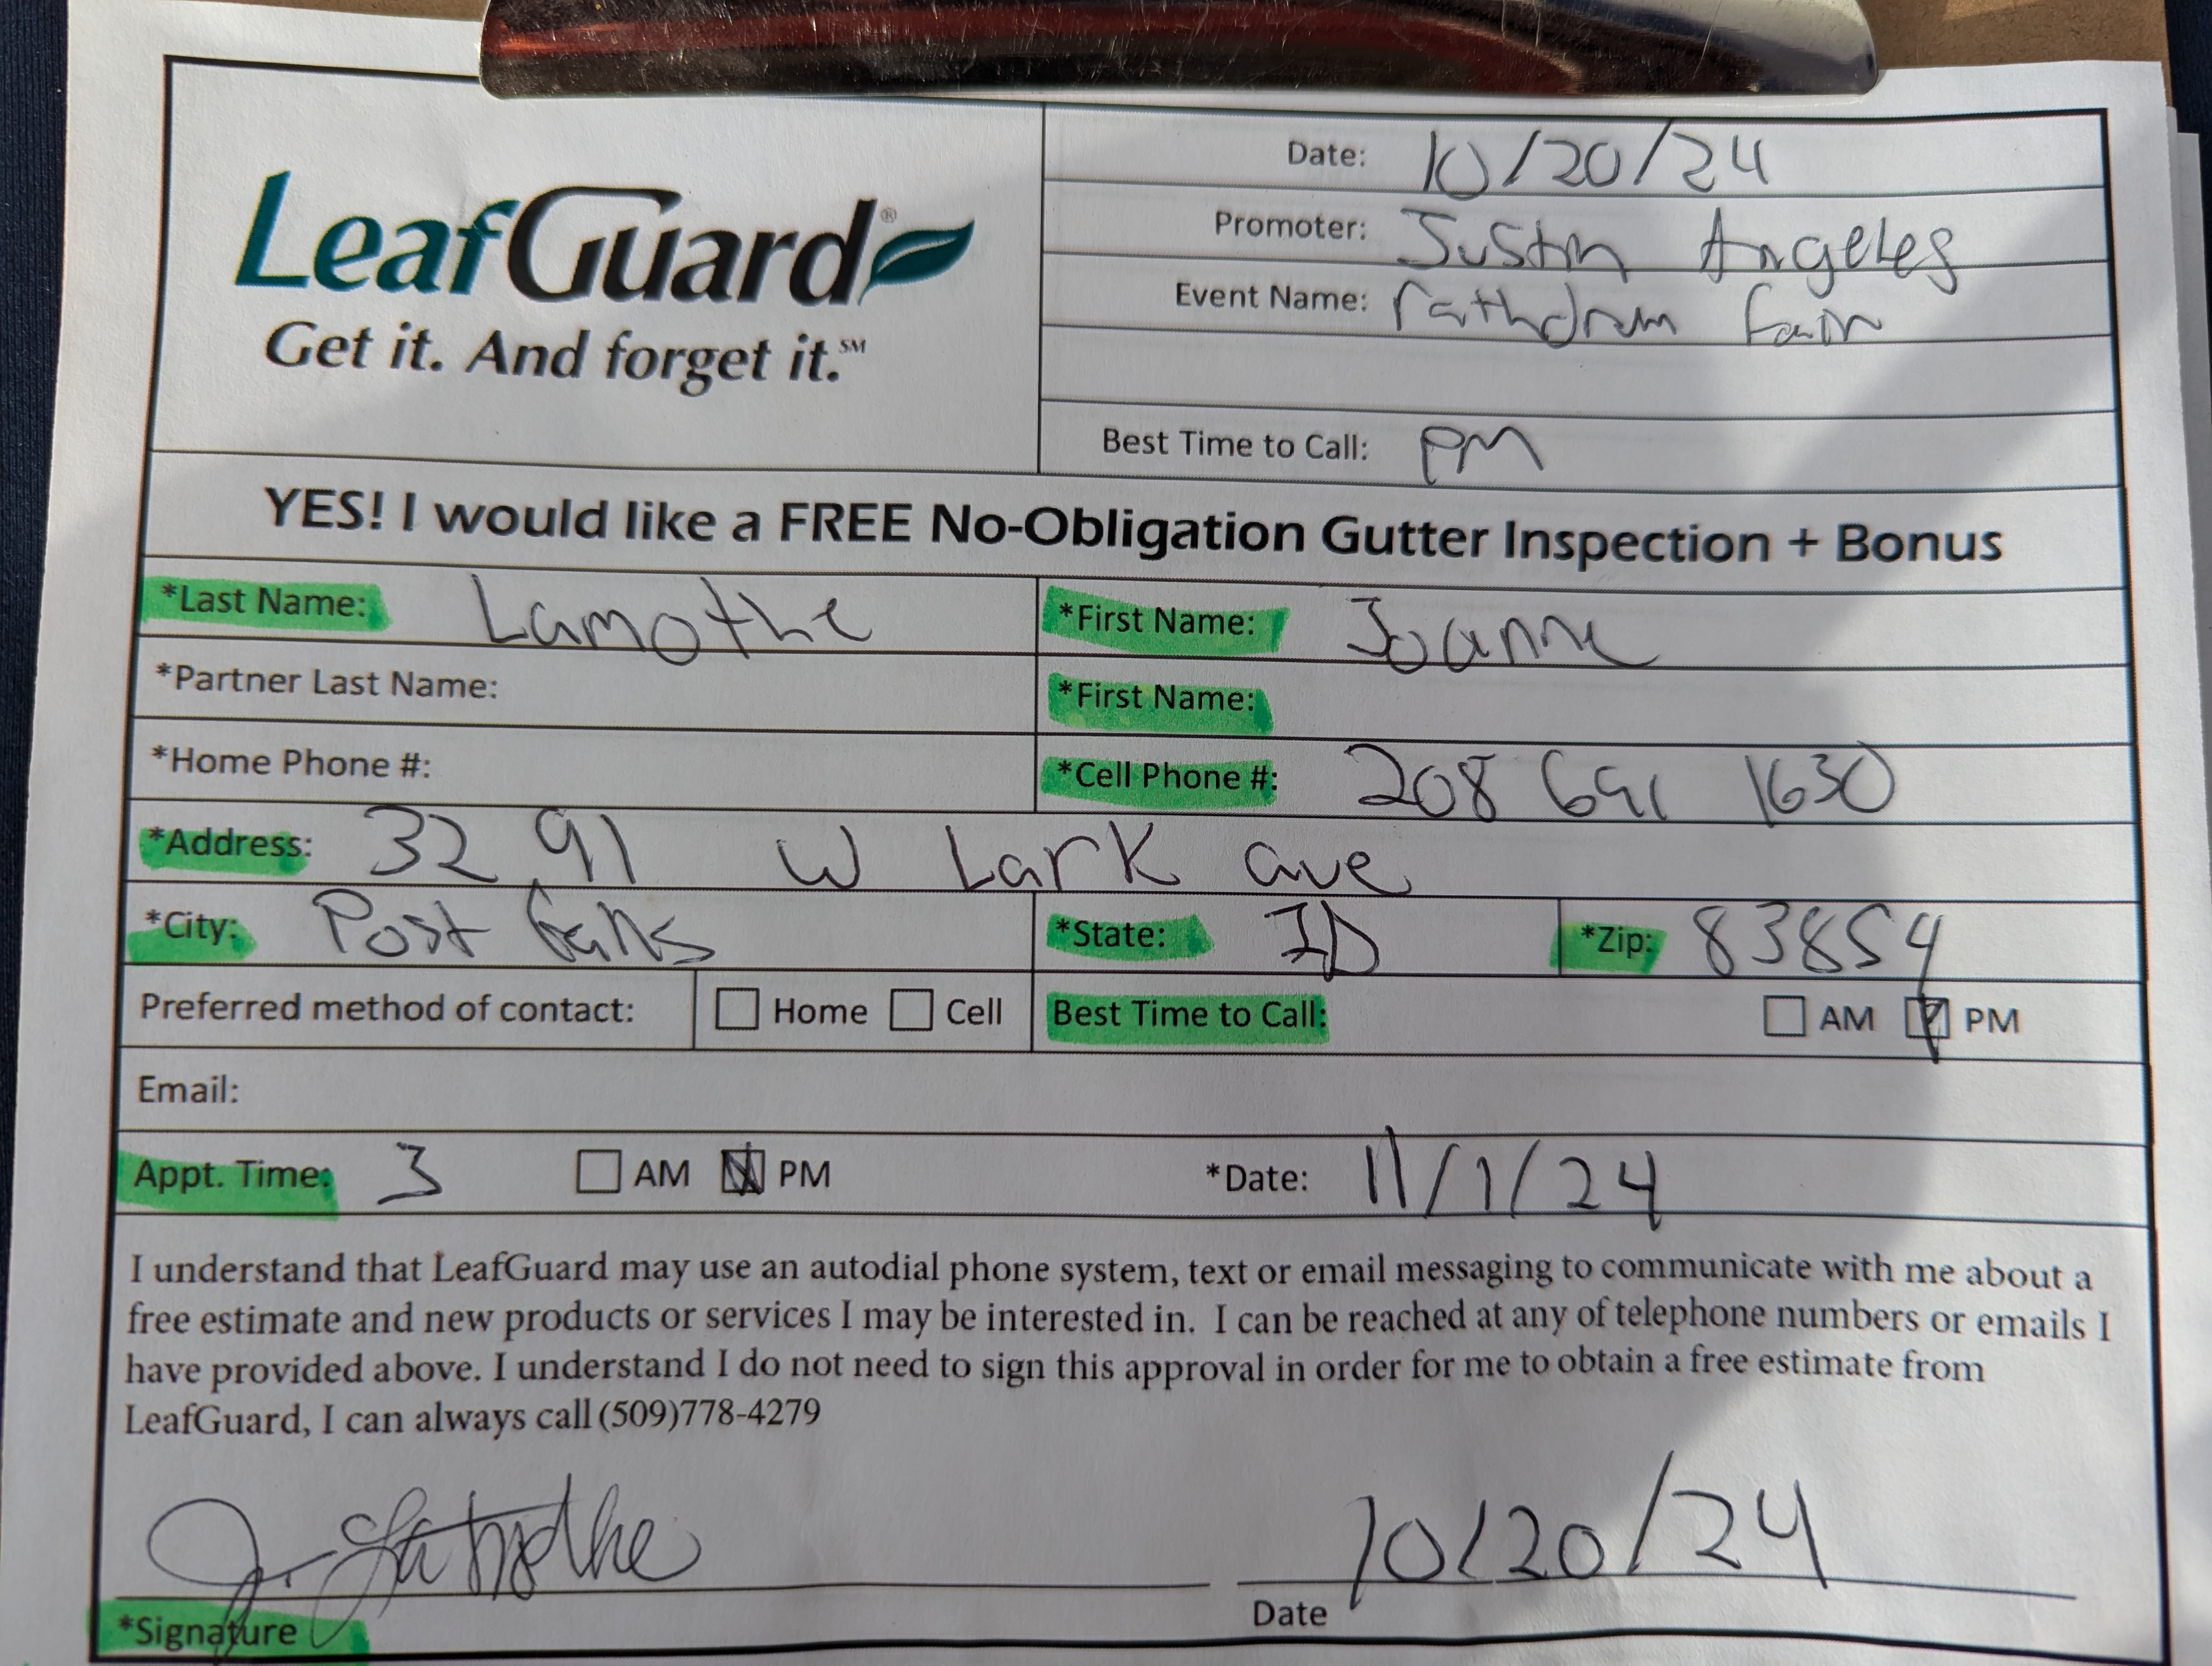 LeafGuard®
Get it. And forget it.℠
Date: 10/20/24
Promoter: Justin Angeles
Event Name: rathdrum fair
Best Time to Call: PM
YES! I would like a FREE No-Obligation Gutter Inspection + Bonus
*Last Name: Lamothe *First Name: Joanne
*Partner Last Name: *First Name:
*Home Phone #: *Cell Phone #: 208 691 1630
*Address: 3291 W Lark ave
*City: Post falls *State: ID *Zip: 83854
Preferred method of contact: Home Cell Best Time to Call: AM PM
Email:
Appt. Time: 3 AM PM *Date: 11/1/24
I understand that LeafGuard may use an autodial phone system, text or email messaging to communicate with me about a
free estimate and new products or services I may be interested in. I can be reached at any of telephone numbers or emails I
have provided above. I understand I do not need to sign this approval in order for me to obtain a free estimate from
LeafGuard, I can always call (509)778-4279
J. Lamothe 10/20/24
*Signature Date